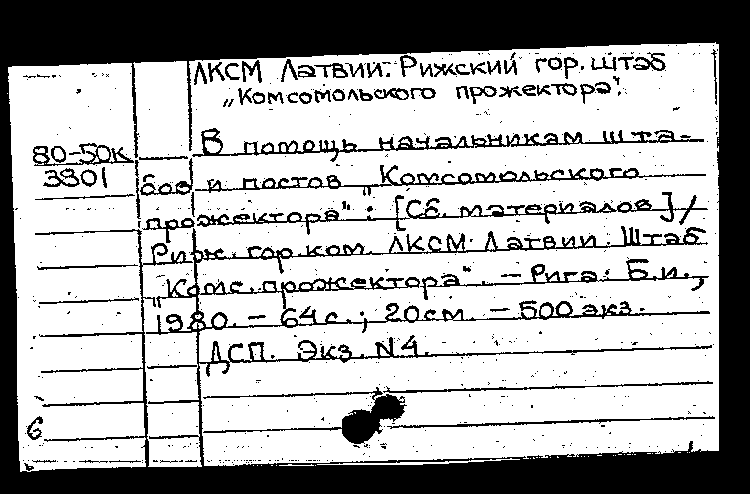 ЛКСМ Латвии. Рижский гор. штаб
„Комсомольского прожектора".
80-50к
3801
В помощь начальникам шта-
бов и постов „Комсомольского
прожектора" : [Сб. материалов] /
Риж. гор. ком. ЛКСМ Латвии. Штаб
„Комс. прожектора". – Рига : Б.и.,
1980. – 64 с. ; 20 см. – 500 экз.
ДСП. Экз. N 4.
6